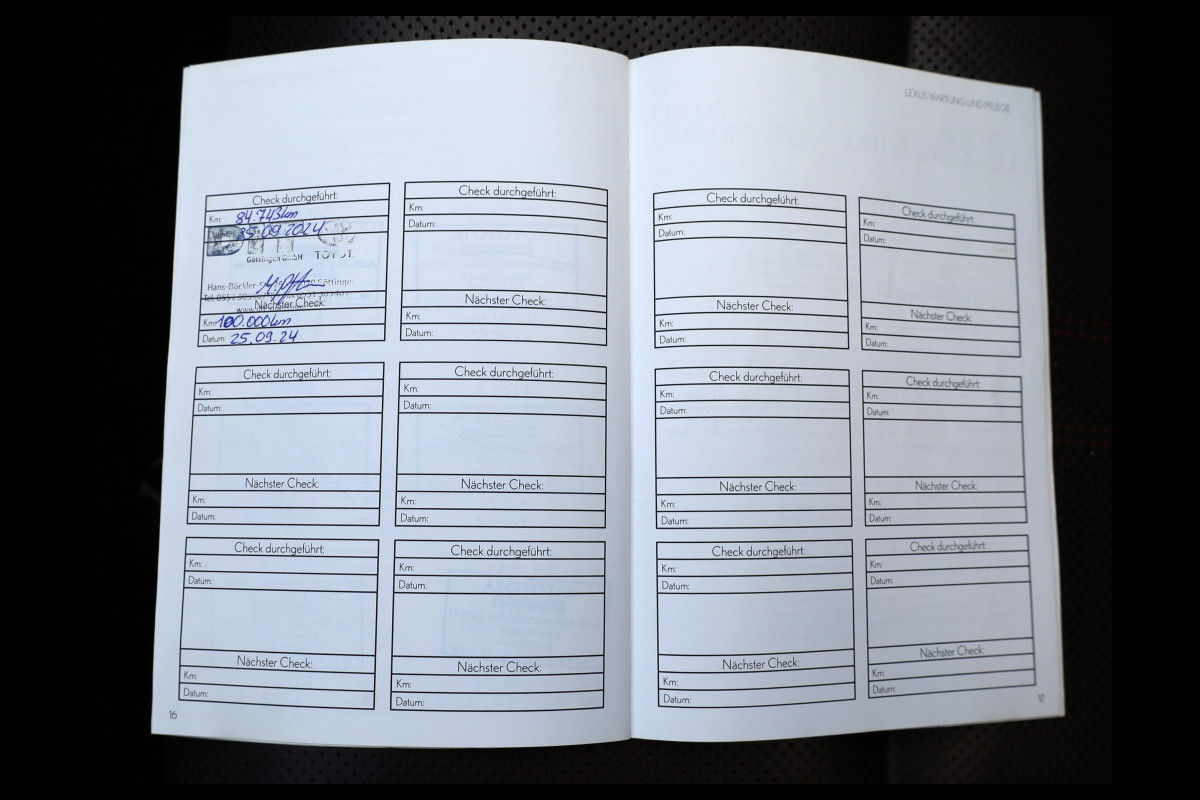 LEXUS WARTUNG UND PFLEGE
Check durchgeführt:
Km: 84.743km
Datum: 25.09.2024
Göttingen GmbH TOYOT
Hans-Böckler-S Göttinge
Tel.
Nächster Check:
Km: 100.000km
Datum: 25.09.24
Check durchgeführt:
Km:
Datum:
Nächster Check:
Km:
Datum:
Check durchgeführt:
Km:
Datum:
Nächster Check:
Km:
Datum:
Check durchgeführt:
Km:
Datum:
Nächster Check:
Km:
Datum:
Check durchgeführt:
Km:
Datum:
Nächster Check:
Km:
Datum:
Check durchgeführt:
Km:
Datum:
Nächster Check:
Km:
Datum:
16
Check durchgeführt:
Km:
Datum:
Nächster Check:
Km:
Datum:
Check durchgeführt:
Km:
Datum:
Nächster Check:
Km:
Datum:
Check durchgeführt:
Km:
Datum:
Nächster Check:
Km:
Datum:
Check durchgeführt:
Km:
Datum:
Nächster Check:
Km:
Datum:
Check durchgeführt:
Km:
Datum:
Nächster Check:
Km:
Datum:
Check durchgeführt:
Km:
Datum:
Nächster Check:
Km:
Datum:
17